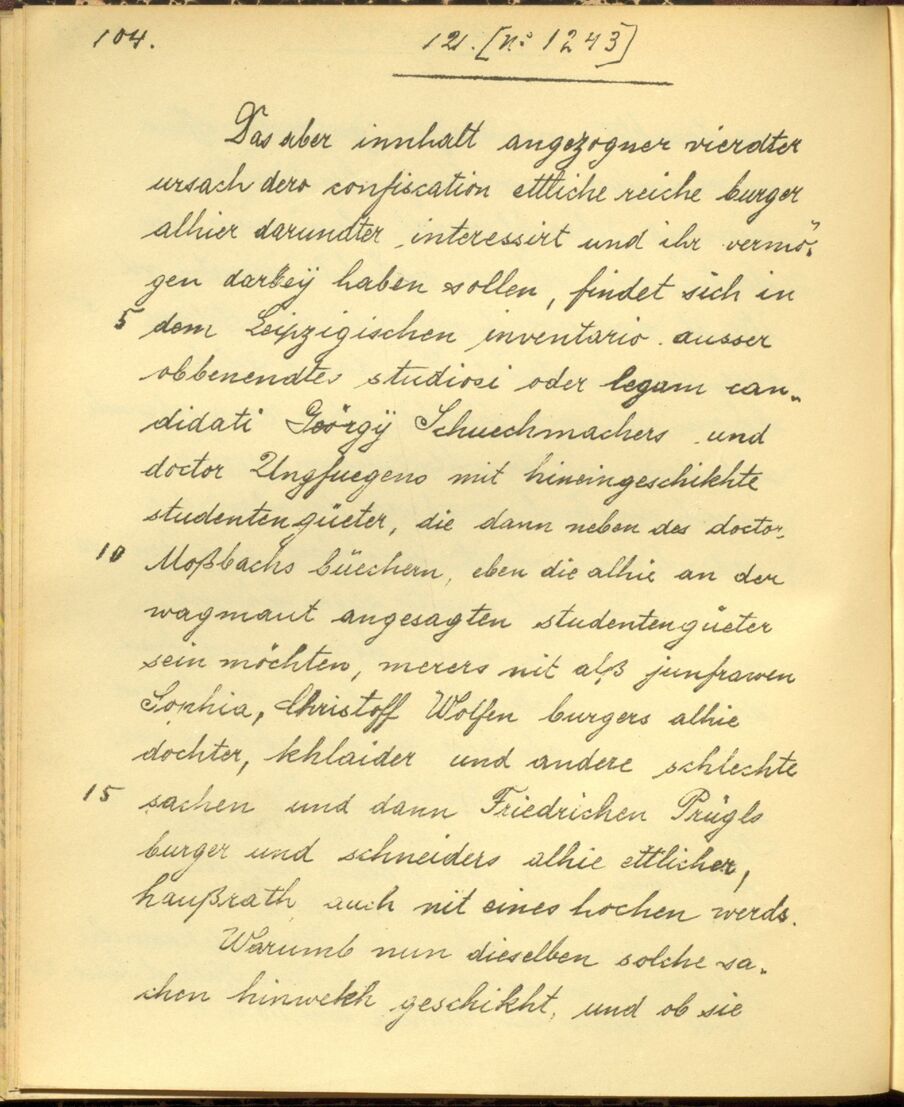 104.
12. [n° 1243]
Das aber innhalt angezogner vierdter
ursach dero confiscation ettliche reiche burger
alhier darundter interessirt und ihr vermö„
gen darbeÿ haben sollen, findet sich in
5 dem Leipzigischen inventario ausser
obbenendtes studiosi oder legam can„
didati Geörgÿ Schuechmachers und
doctor Ungfuegens mit hineingeschikhte
studentengüeter, die dann neben des doctor
10 Moßbachs büechern, eben die alhie an der
wagmaut angesagten studentengüeter
sein möchten, merers nit alß junfrawen
Sophia, Christoff Wolfen burgers alhie
dochter, khlaider und andere schlechte
15 sachen und dann Friedrichen Prügls
burger und schneiders alhie ettlicher,
haußrath auch nit eines hochen werds.
Warumb nun dieselben solche sa„
chen hinwekh geschikht, und ob sie